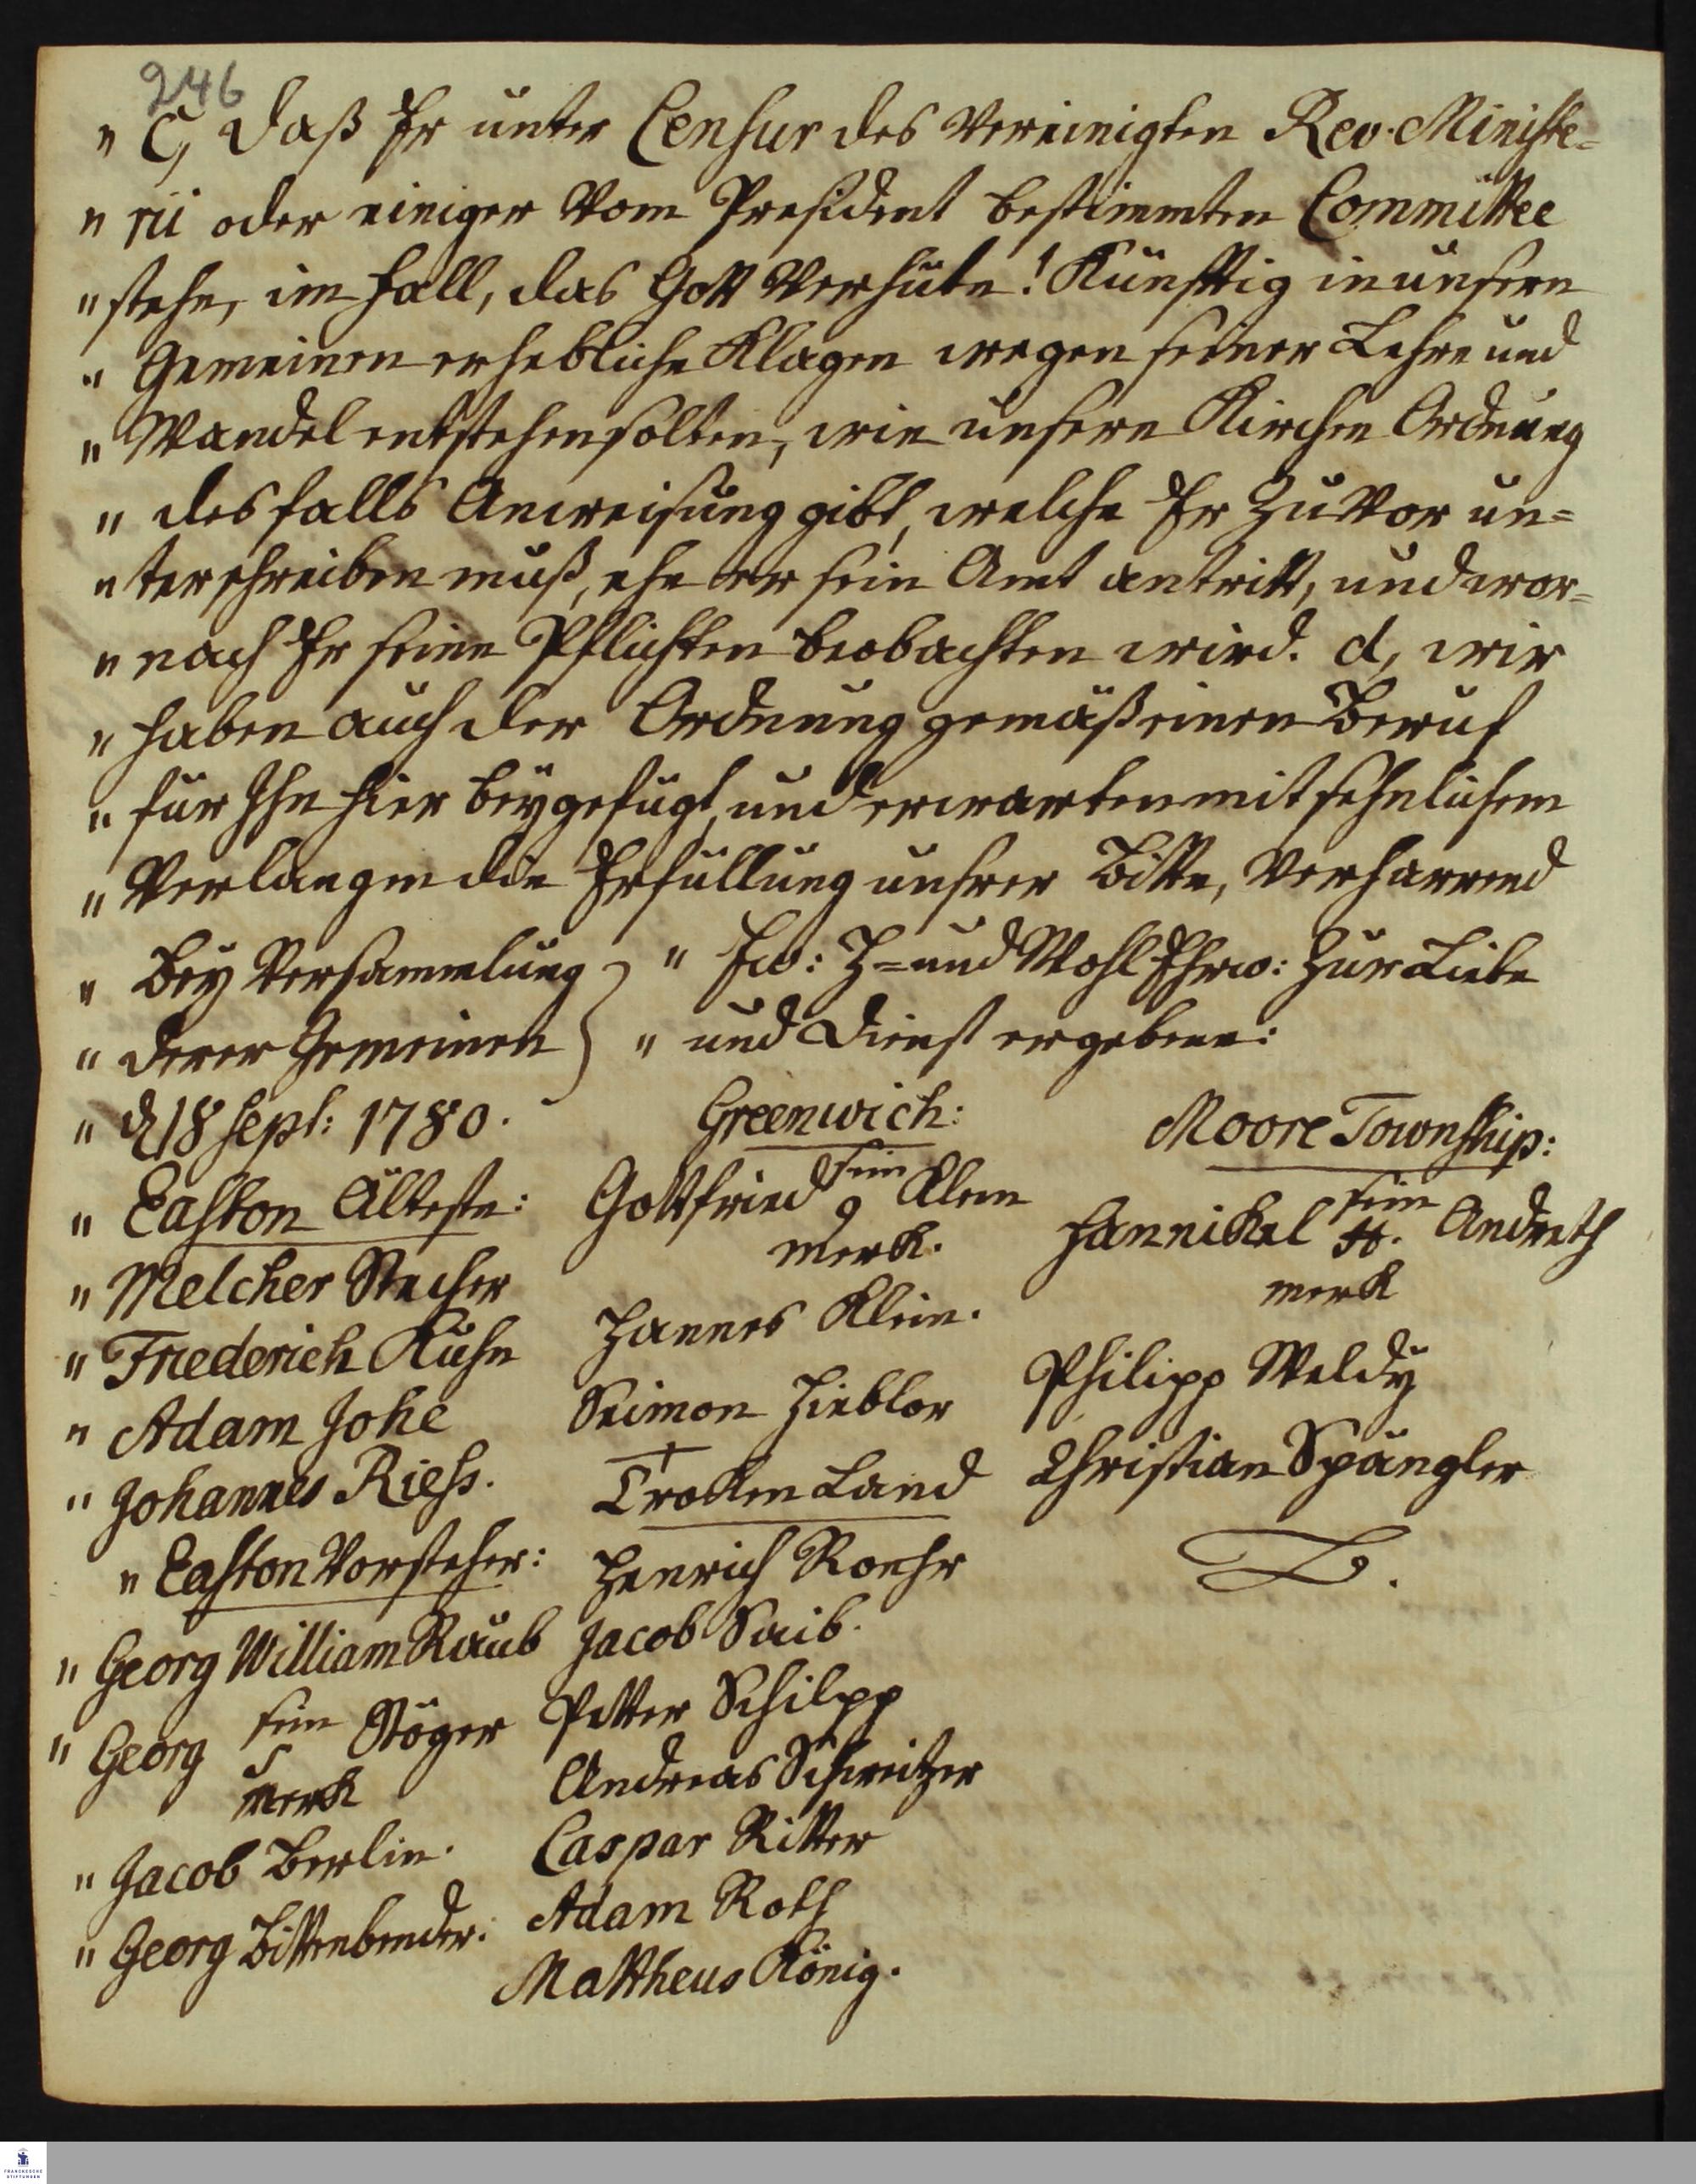 246
" C, daß Er unter Censur des Vereinigten Rev. Ministe=
" rii oder einiger vom President bestimmten Committee
" stehe, im fall, das Gott verhüte! Künfftig in unsern
" Gemeinen erhebliche Klagen wegen seiner Lehre und
" Wandel entstehen solten, wie unsere Kirchen Ordnung
" desfalls Anweisung gibt, welche Er zuvor un=
" terschreiben muß, ehe er sein Amt antritt, und wor=
" nach Er seine Pflichten beobachten wird. d, wir
" haben auch der Ordnung gemäß einen Beruf
" für Ihn hier beygefügt, und erwarten mit sehnlichem
" Verlangen die Erfüllung unsrer Bitte, verharrend
" Bey Versammlung " Ew: H= und Wohl Ehrw: zur Liebe
" derer Gemeinen " und Dienst ergebene:
" d 18 Sept: 1780.
" Easton Älteste:
" Melcher Stecher
" Friederich Kuhn
" Adam Johe
" Johannes Riess.
" Easton Vorsteher:
" Georg William Raub
" Georg sein Stöger
S
merk
" Jacob Berlin.
" Georg Bittenbender.
Greenwich:
Gottfried sein Klein
9
merk.
Hannes Klein.
Seimon Hiebler
Trocken Land
Henrich Roehr
Jacob Saib.
Petter Schilpp
Andreas Schweitzer
Caspar Ritter
Adam Roth
Mattheus König.
Moore Township:
Hannickel sein Andreth
H.
merk
Philipp Weldy
Christian Spängler
FRANCKESCHE
STIFTUNGEN